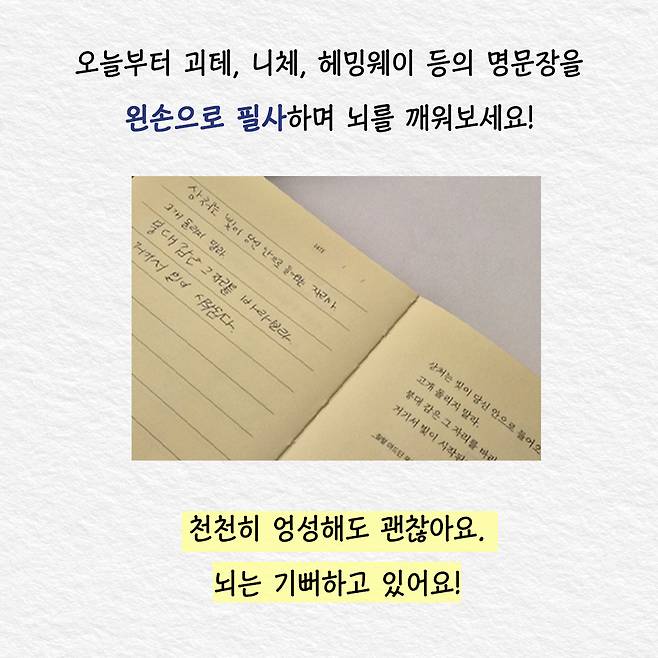 오늘부터 괴테, 니체, 헤밍웨이 등의 명문장을
왼손으로 필사하며 뇌를 깨워보세요!
상처는 빛이 당신 안으로 들어오는 자리다
고개 돌리지 말라
붕대 감은 그 자리를 바라보라
거기서 빛이 시작된다.
상처는 빛이 당신 안으로 들어오
고개 돌리지 말라.
붕대 감은 그 자리를 바라
거기서 빛이 시작된
천천히 엉성해도 괜찮아요.
뇌는 기뻐하고 있어요!